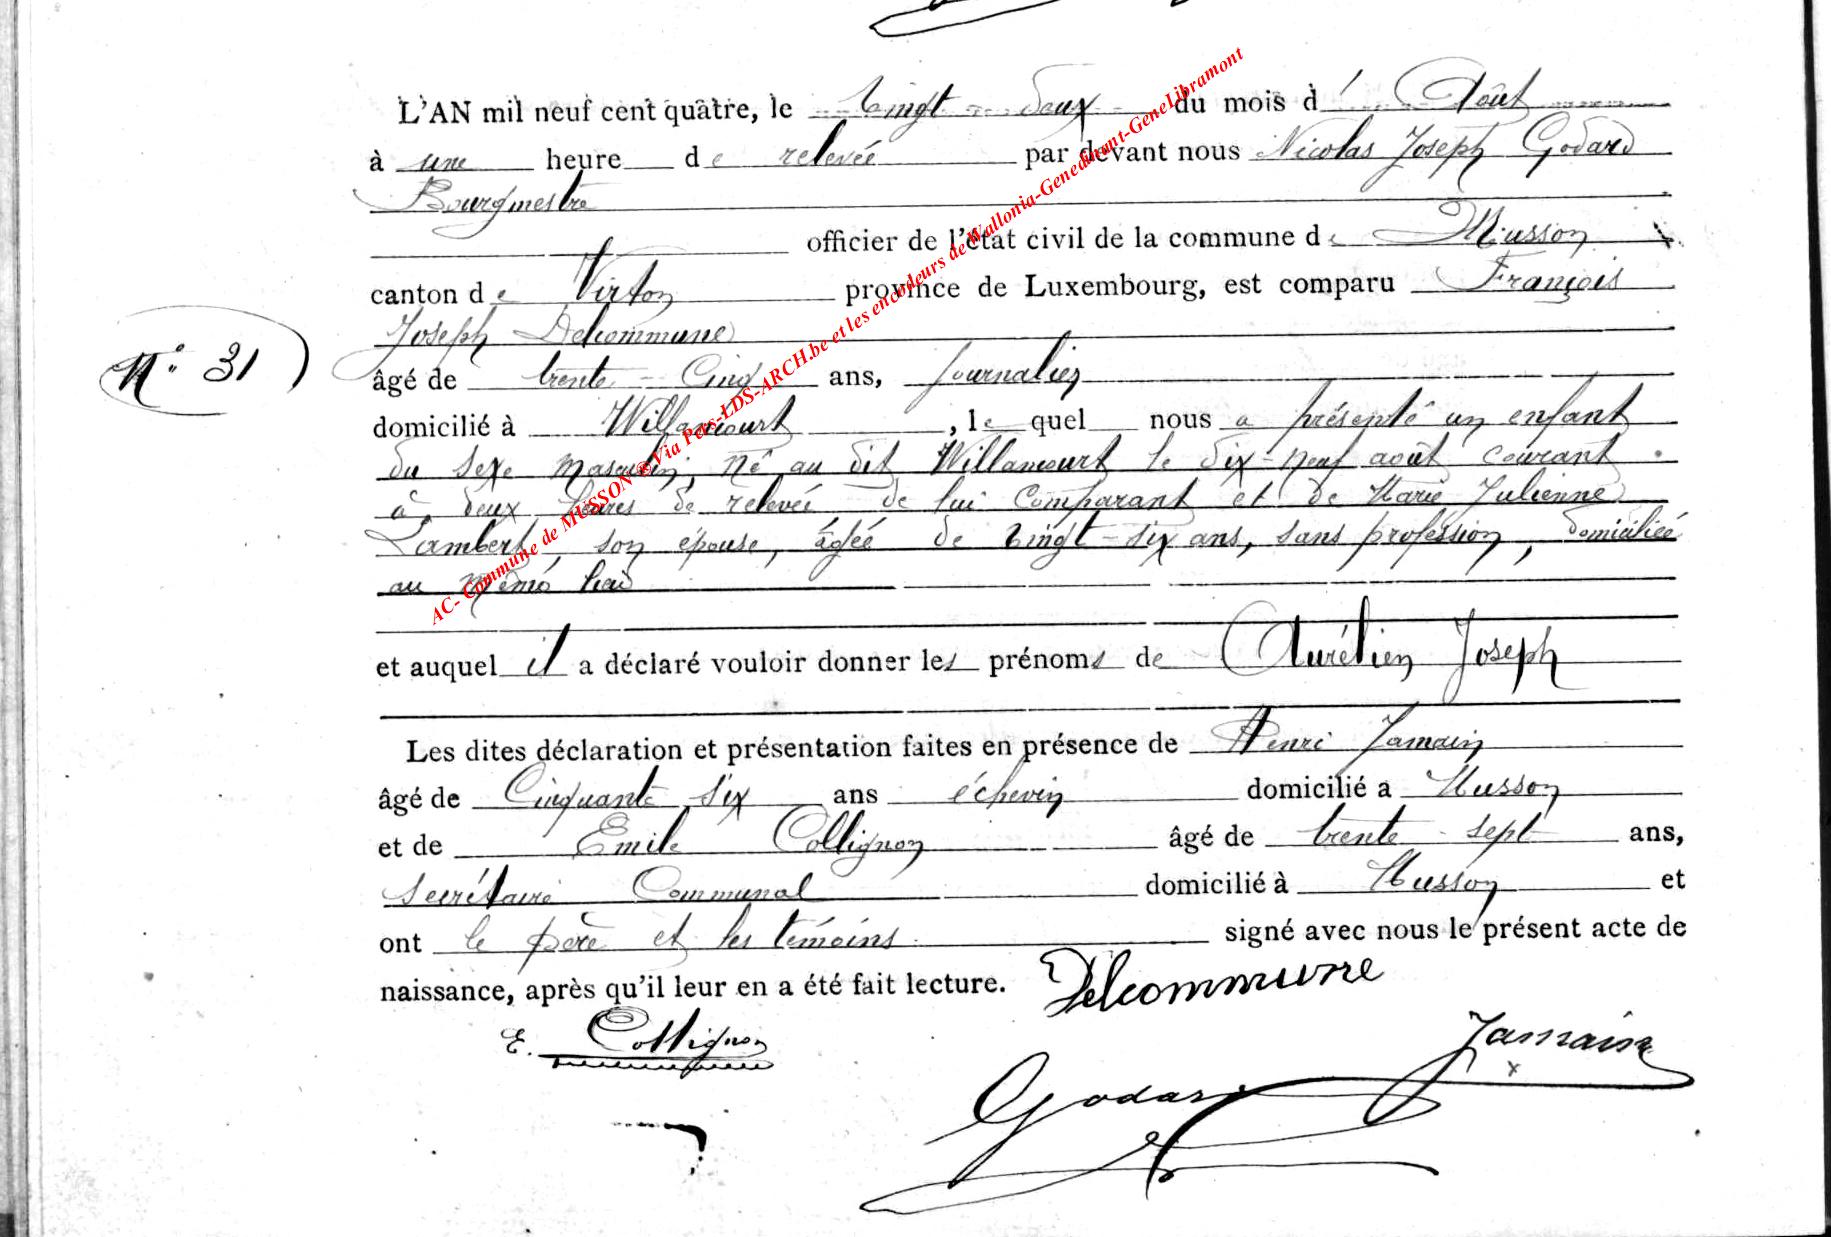 L'AN mil neuf cent quatre, le vingt deux du mois d' Août
à une heure de relevée par devant nous Nicolas Joseph Godard
Bourgmestre
officier de l'état civil de la commune de Musson
canton de Virton province de Luxembourg, est comparu François
Joseph Delcommune
N° 31
âgé de trente-Cinq ans, Journalier
domicilié à Willancourt, le quel nous a présenté un enfant
du sexe masculin, né au dit Willancourt le dix-neuf août courant
à deux heures de relevée de lui Comparant et de Marie Julienne
Lambert, son épouse, âgée de vingt-six ans, sans profession, domiciliée
au même lieu
et auquel il a déclaré vouloir donner les prénoms de Aurélien Joseph
Les dites déclaration et présentation faites en présence de Henri Jamain
âgé de Cinquante six ans échevin domicilié a Musson
et de Emile Collignon âgé de trente-sept ans,
Secrétaire Communal domicilié à Musson et
ont le père et les témoins signé avec nous le présent acte de
naissance, après qu'il leur en a été fait lecture. Delcommune
E. Collignon
Jamain
Godard
AC- Commune de MUSSON ® Via Pers-LDS-ARCH.be et les encodeurs de Wallonia-Genedinant-GeneLibramont